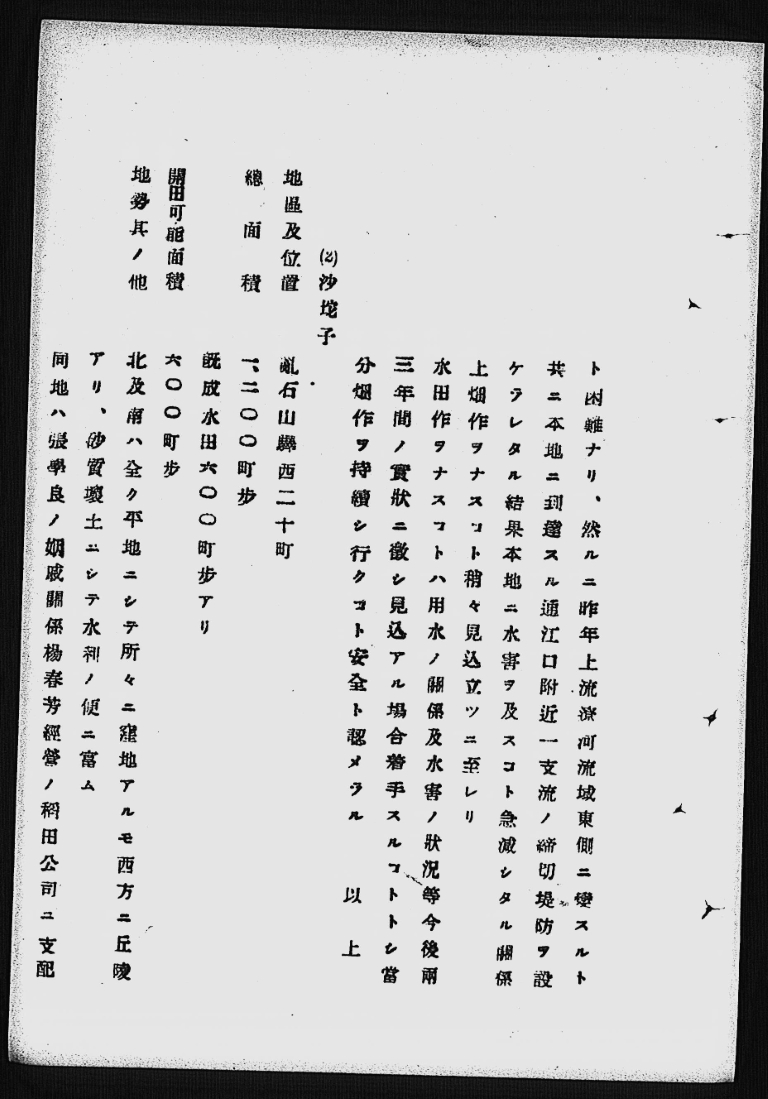 ト困難ナリ、然ルニ昨年上流遼河流域東側ニ變スルト
共ニ本地ニ到達スル通江口附近一支流ノ締切堤防ヲ設
ケラレタル結果本地ニ水害ヲ及スコト急減シタル關係
上畑作ヲナスコト稍々見込立ツニ至レリ
水田作ヲナスコトハ用水ノ關係及水害ノ狀況等今後兩
三年間ノ實狀ニ徵シ見込アル場合着手スルコトトシ當
分畑作ヲ持續シ行クコト安全ト認メラル　以上
(2)沙坨子
地區及位置　亂石山驛西二十町
總面積　一、二〇〇町步
既成水田六〇〇町步アリ
開田可能面積　六〇〇町步
地勢其ノ他　北及南ハ全ク平地ニシテ所々ニ窪地アルモ西方ニ丘陵
アリ、砂質壤土ニシテ水利ノ便ニ富ム
同地ハ張學良ノ姻戚關係楊春芳經營ノ稻田公司ニ支配